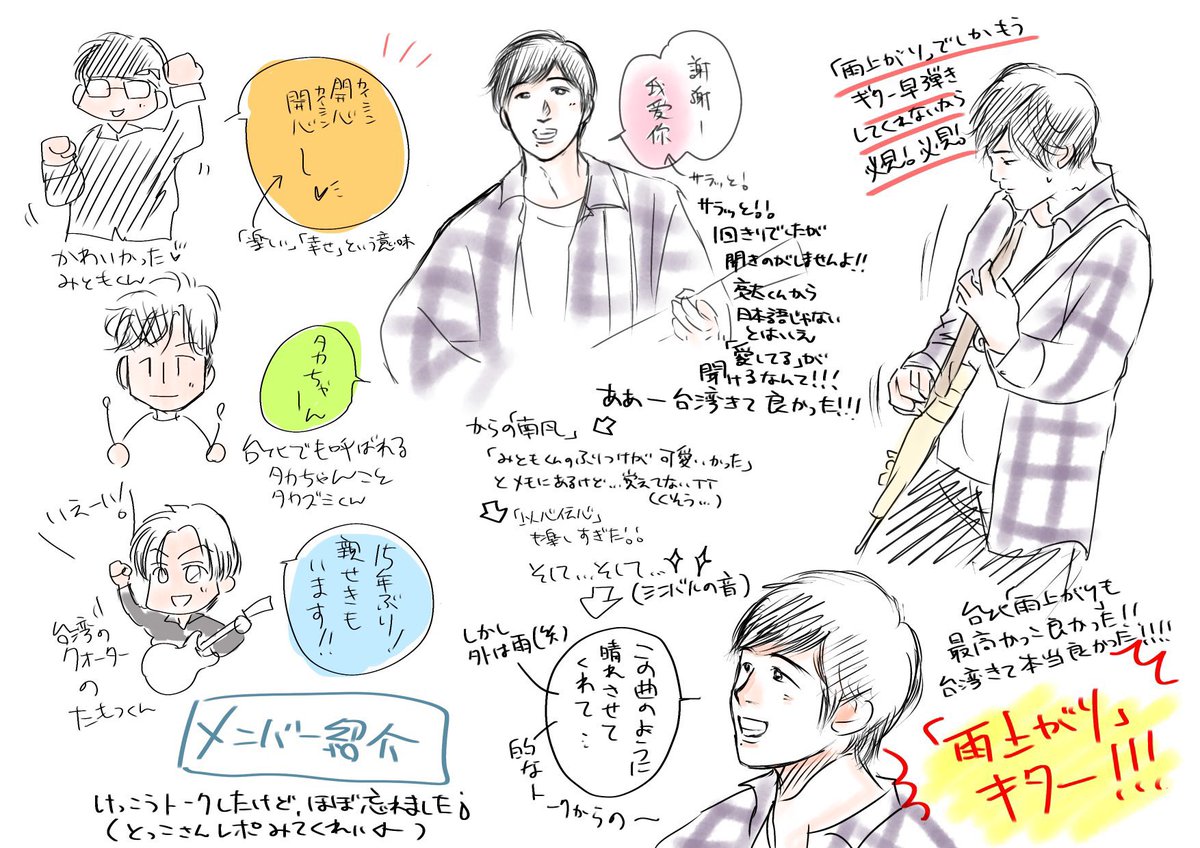 カイシン
開心
カイシン
開心〜♡
「楽しい」「幸せ」という意味
かわいかった♡
みともくん
タカちゃーん
台北でも呼ばれる
タカちゃんこと
タカズミくん
いえーい!
15年ぶり!
親せきも
います!!
台湾の
クォーター
の
たもつくん
メンバー紹介
けっこうトークしたけど、ほぼ忘れました
(とっこさんレポみてくれいよー)
謝謝ー
我愛你
サラッと!
サラッと!!
1回きりでしたが
聞きのがしませんよ!!
亮太くんから
日本語じゃない
とはいえ
「愛してる」が
聞けるなんて!!!
ああー台湾きて良かった!!!
からの「南風」
「みともくんのぶりつけが可愛いかった」
とメモにあるけど…覚えてないTT
(くそう…)
「以心伝心」
も楽しすぎた!!
そして…そして…
(シンバルの音)
この曲のように
晴れさせて
くれて…
しかし
外は雨(笑)
的な
トークからの〜
「雨上がり」でしかもう
ギター早弾き
してくれないから
必見!必見!
台北「雨上がり」も
最高かっこ良かった!!
台湾きて本当良かった!!!!
「雨上がり」
キター!!!